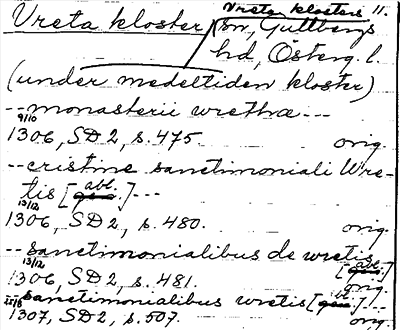 Vreta kloster Vreta klosters 11.
sn, Gullbergs
hd, Österg. l.
(under medeltiden kloster)
-- monasterii wrethæ ---
9/10
1306, SD 2, s. 475. orig.
-- cristine sanctimoniali Wre-
tis [gen. abl.] ---
13/12
1306, SD 2, s. 480. orig.
-- sanctimonialibus de wretis
13/12 [abl.]
1306, SD 2, s. 481. orig.
sanctimonialibus wretis [gen. abl.] --
1307, SD 2, s. 507. orig.